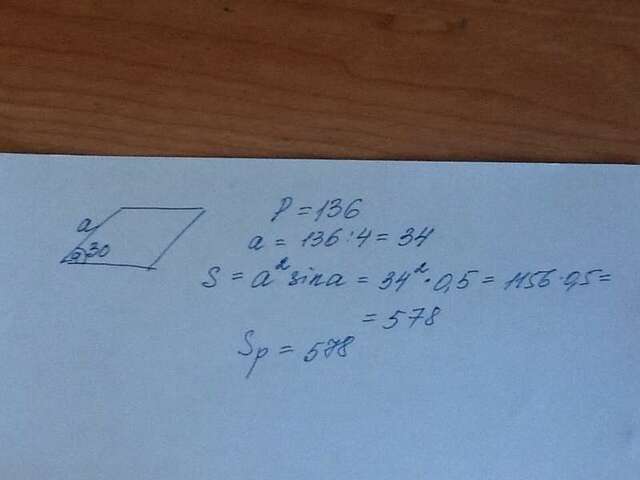 a
30
P = 136
a = 136 : 4 = 34
S = a² sin a = 34² · 0,5 = 1156 · 0,5 =
= 578
Sp = 578